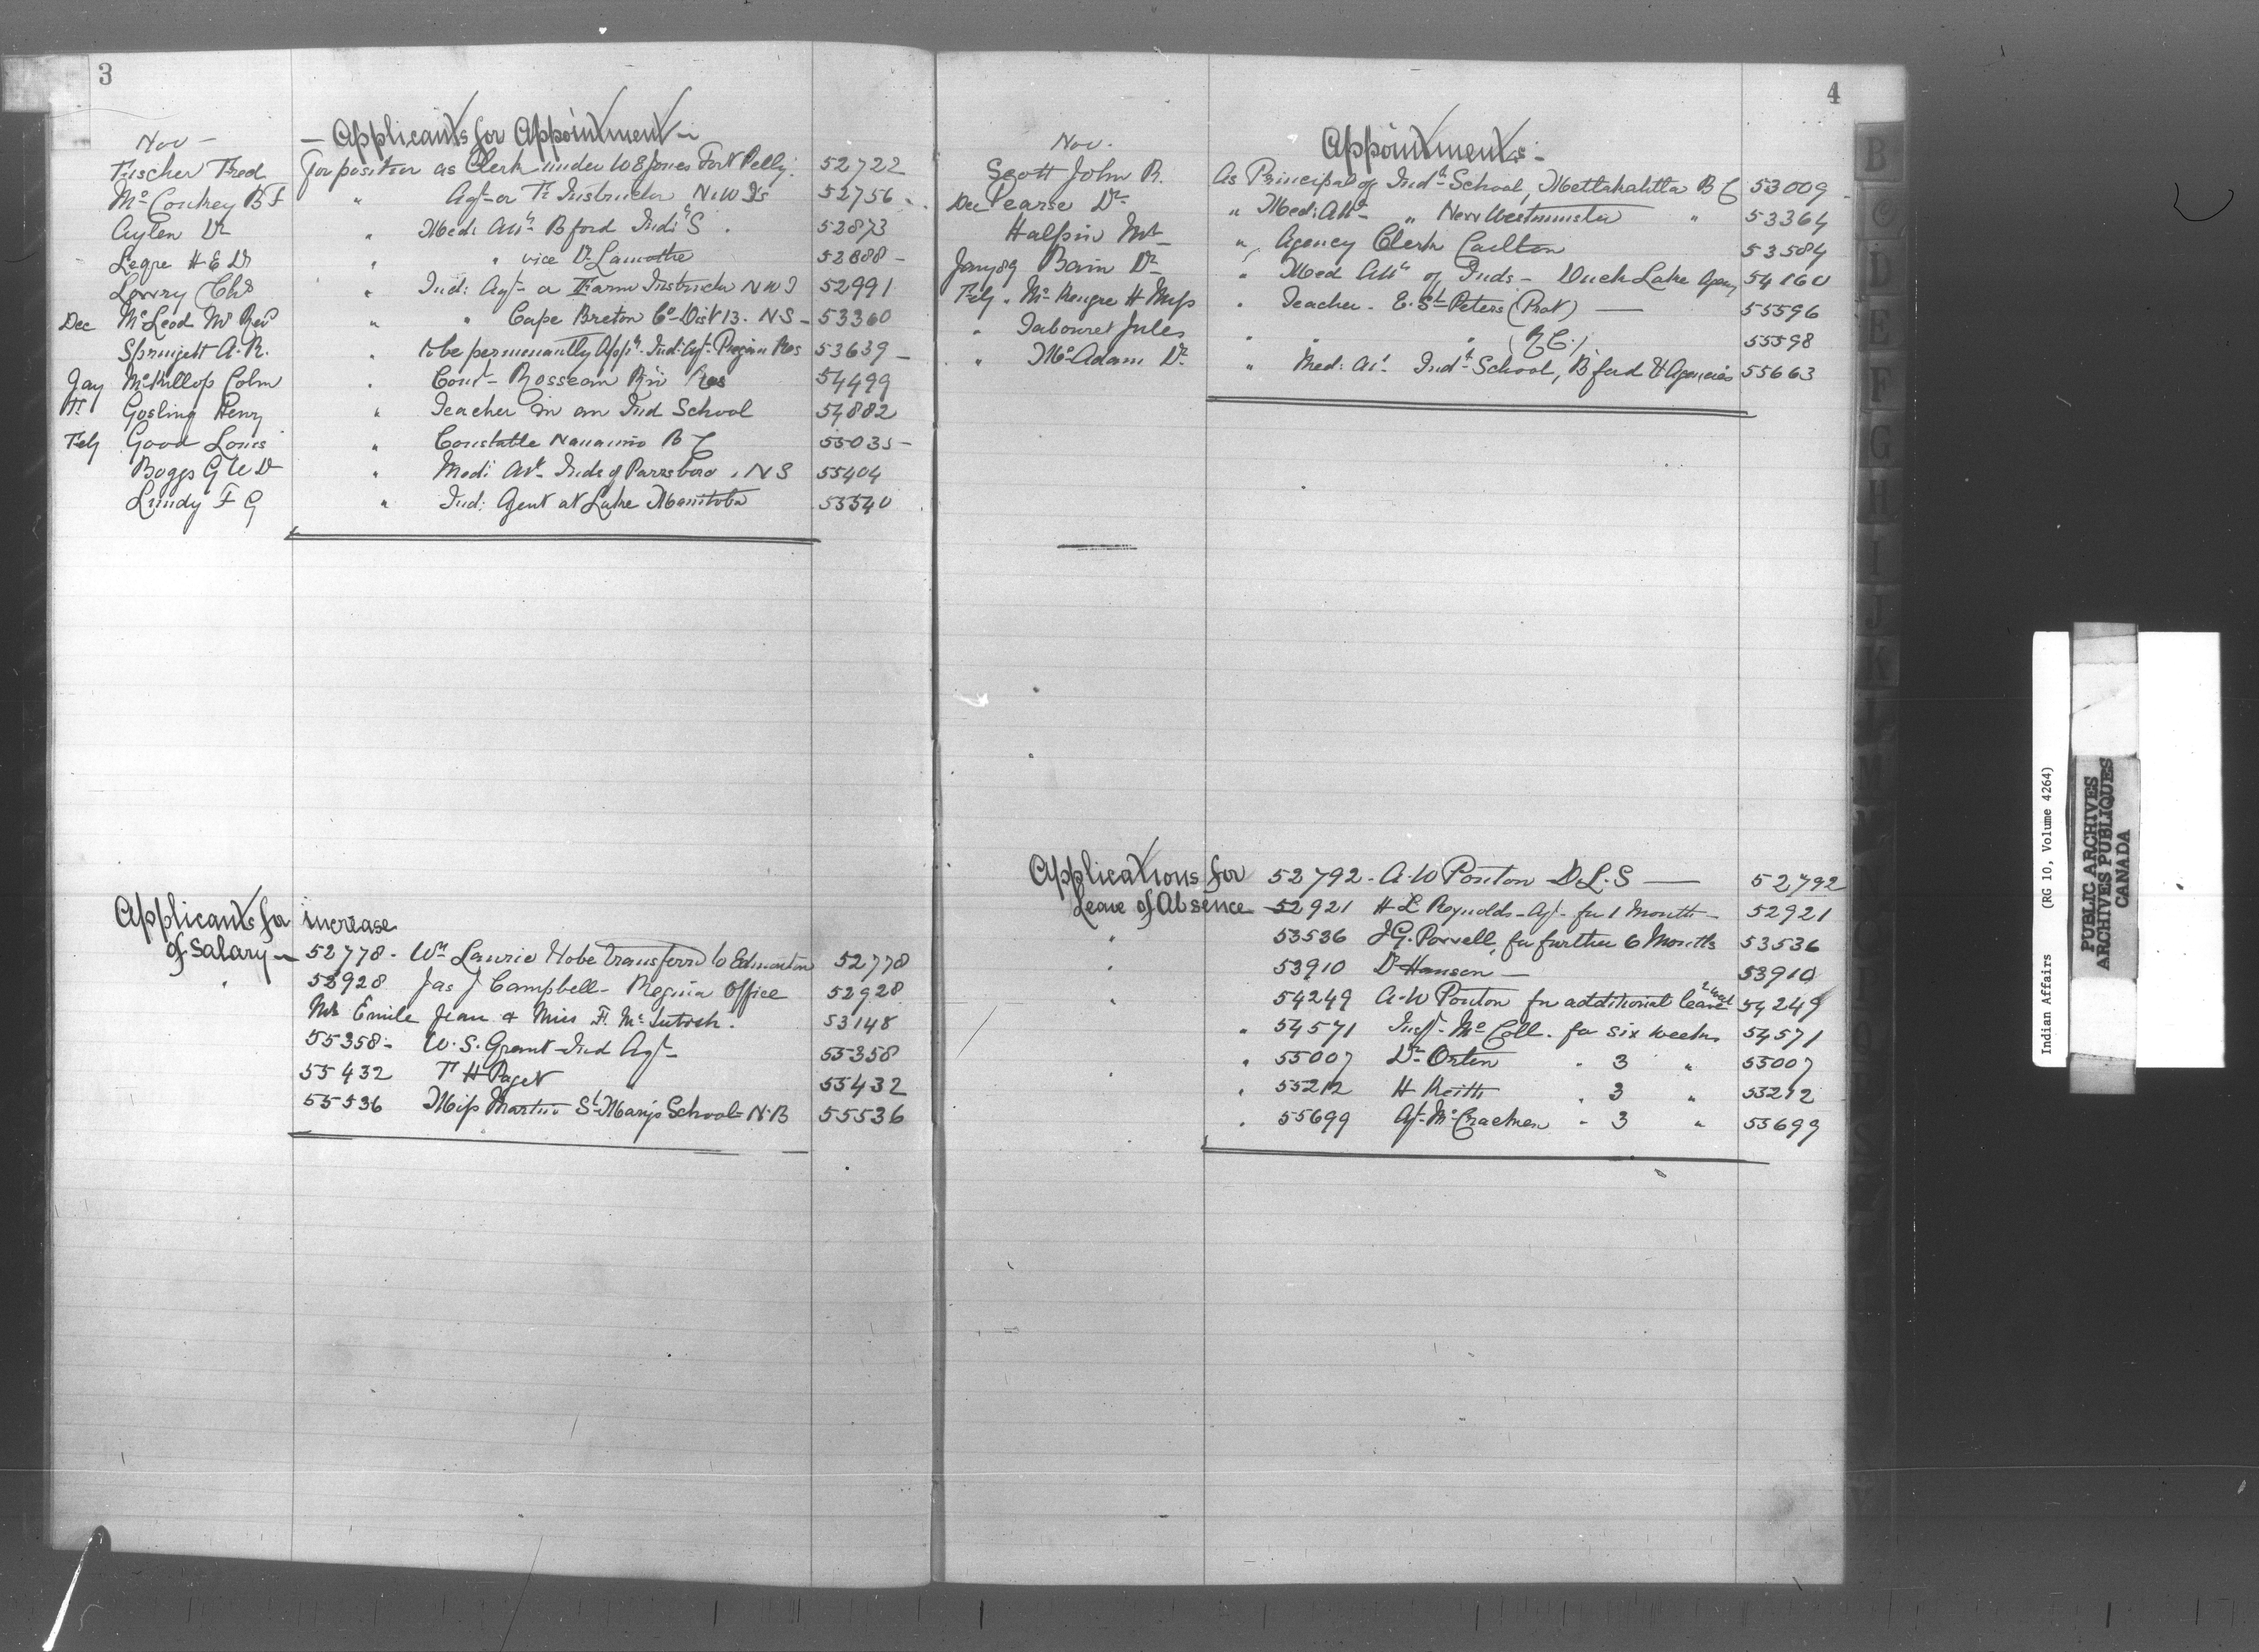 3
Nov - — Applicants for Appointment —
Fischer Fred For position as Clerk under W E Jones Fort Pelly. 52722
Mc Conkey B F " Agt or F. Instructor N.W Ts 52756
Aylen Dr " Medl Att. B ford Indl S. 52873
Legre H E Dr " " vice Dr Lamothe 52888 -
Lowry Chs " Ind: Agt or Farm Instructor N W T 52991
Dec McLeod Mr Revd " " Cape Breton Co Dist 13. N S - 53360
Springett A. R. " to be permenantly App. Ind. Agt. Piegan Res 53639 -
Jay McKillop Colin " Const Rosseau Riv Res 54499
" Gosling Henry " Teacher in an Ind School 54882
Feby Good Louis " Constable Nanaimo B C 55035 -
Boggs G W Dr " Medl Att Inds of Parrsboro, N S 55404
Lundy F G " Ind: Agent at Lake Manitoba 55540
Applicants for increase
of Salary — 52778 - Wm Laurie to be transferred to Edmonton 52778
" 52928 Jas J Campbell - Regina Office 52928
Mr Emile Jean & Miss F. McIntosh. 53148
55358 - W. S. Grant Ind Agt 55358
55432 F H Paget 55432
55536 Miss Martin St Mary's School N.B 55536
4
Nov. Appointments -
Scott John R. As Principal of Indl School, Mettakahtla B C 53009
Dec Pearse Dr " Med: Att " New Westminster " 53364
Halpin Mr " Agency Clerk Carlton 53584
Jany 89 Bain Dr " Med Att of Inds - Duck Lake Agency 54160
Feby " H Miss " Teacher. E. St Peters (Prot) — 55596
" Tabouret Jules " " " (R C.) 55598
" McAdam Dr " Med: At. Indl School, B ford & Agencies 55663
Applications for 52792 - A. W Ponton D.L.S — 52792
Leave of Absence — 52921 H L Reynolds - Agt. for 1 Month - 52921
" 53536 J G. Powell, for further 6 Months 53536
" 53910 Dr Hanson — 53910
" 54249 A. W Ponton for additional leave 54249
" 54571 Inspr McColl. for six weeks 54571
" 55007 Dr Orton " 3 " 55007
" 55212 H Keith " 3 " 55212
" 55699 Agt. McCracken " 3 " 55699
B
C
D
E
F
G
H
I
J
K
L
M
Indian Affairs (RG 10, Volume 4264)
PUBLIC ARCHIVES
ARCHIVES PUBLIQUES
CANADA